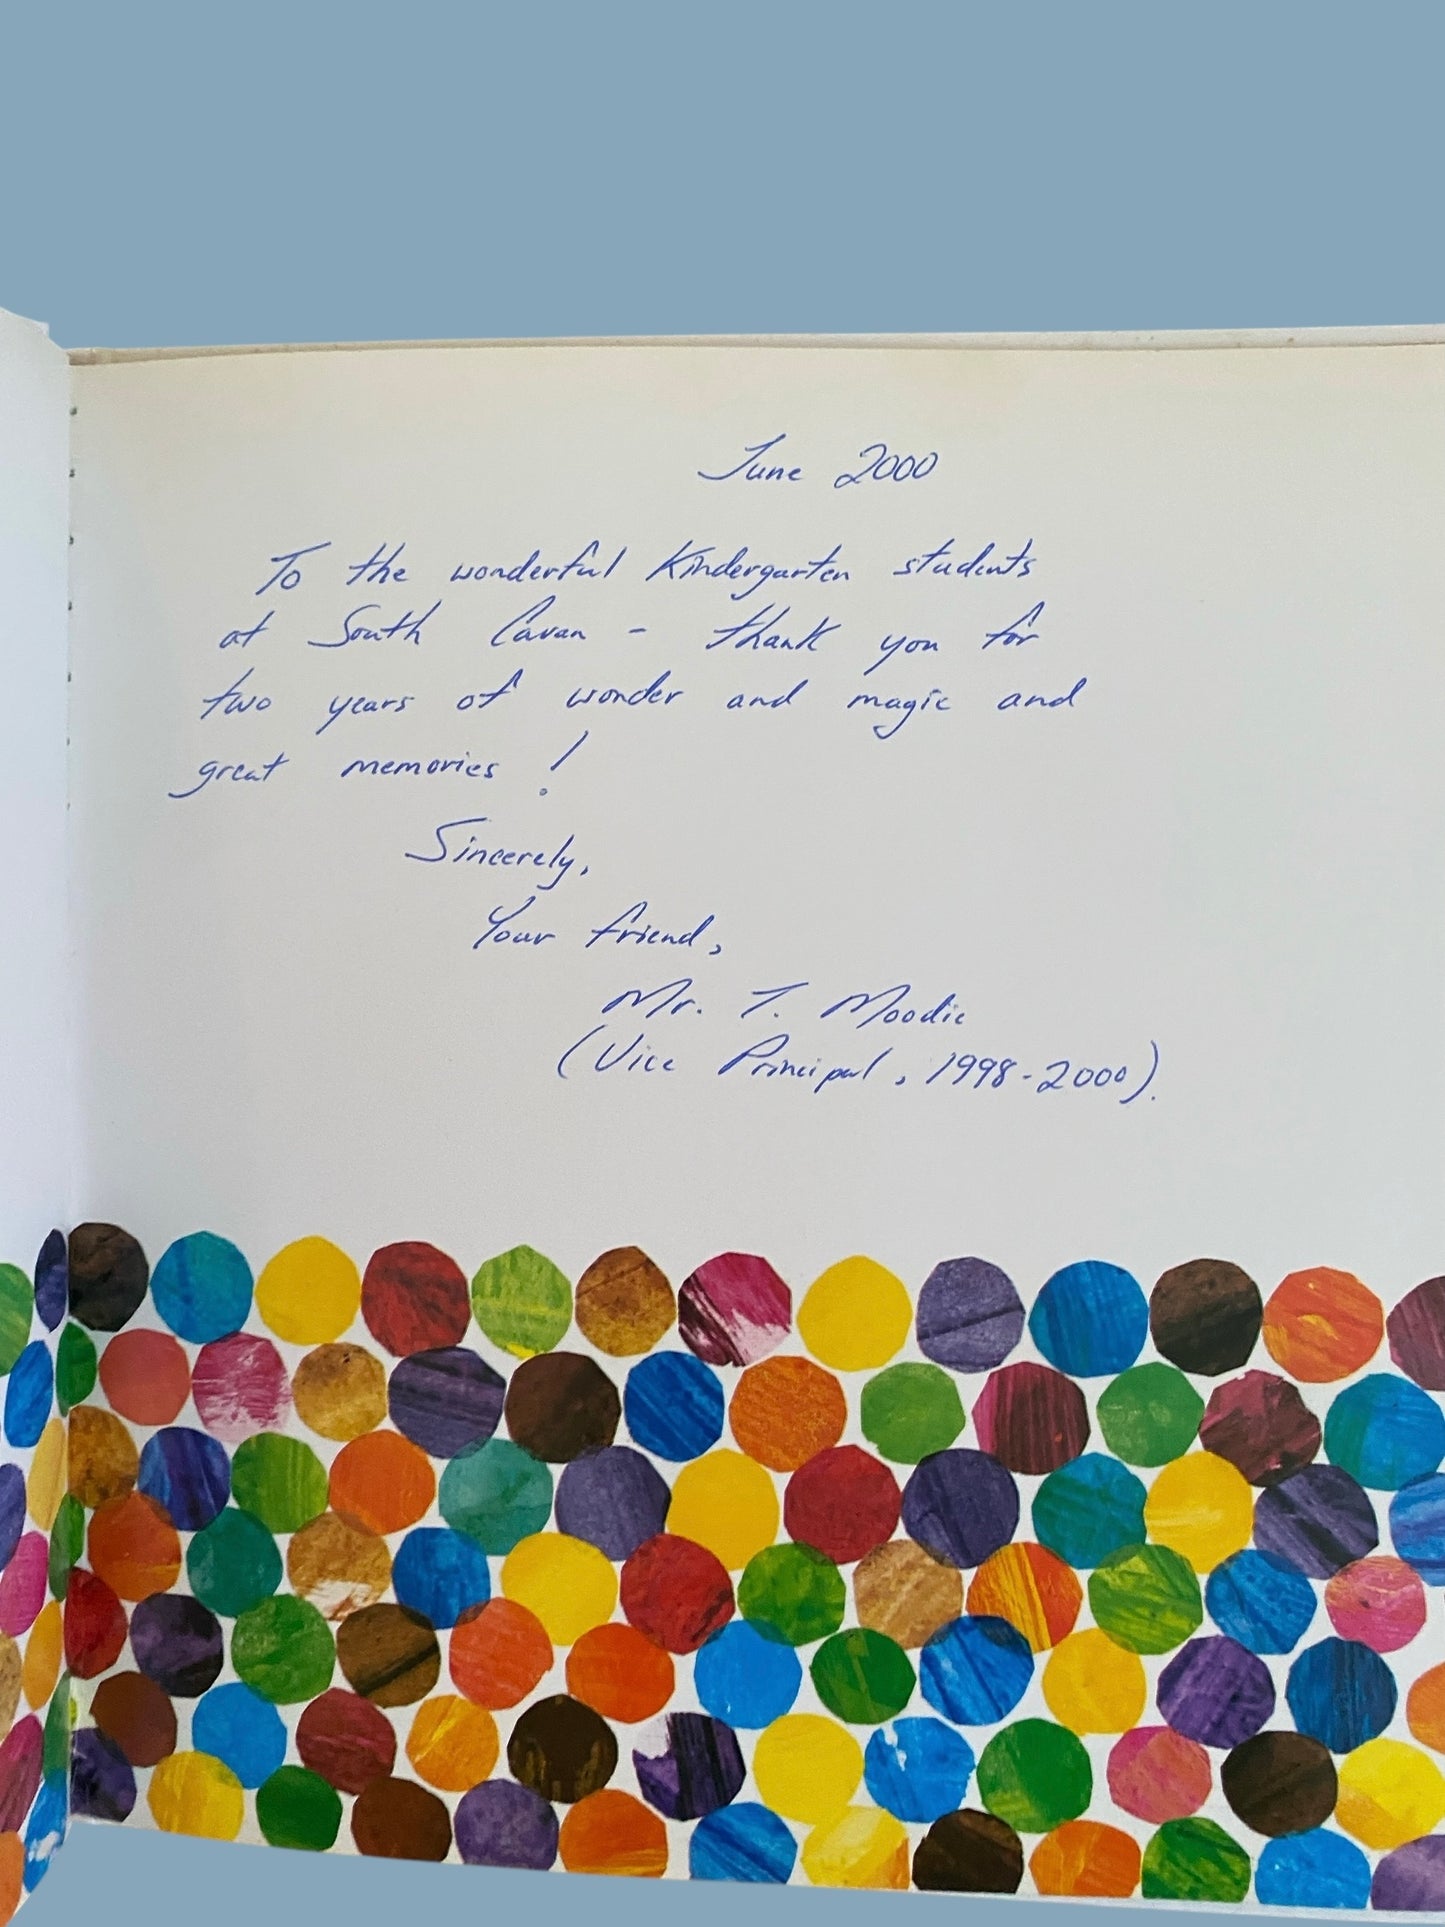 June 2000
To the wonderful Kindergarten students
at South Cavan - thank you for
two years of wonder and magic and
great memories!
Sincerely,
Your friend,
Mr. T. Moodie
(Vice Principal, 1998-2000).